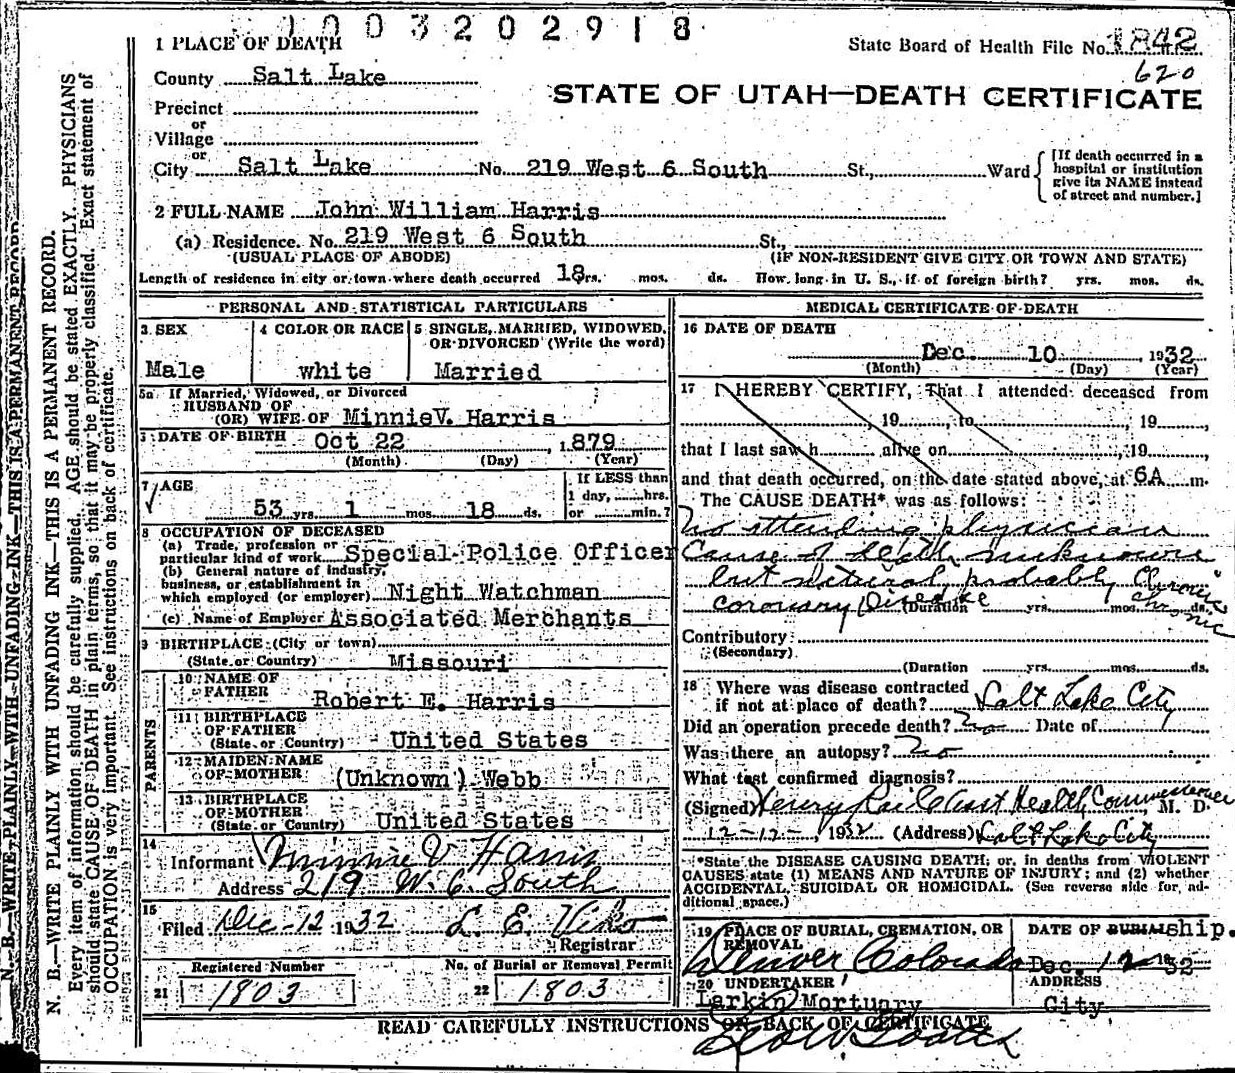 1003202918
1 PLACE OF DEATH
State Board of Health File No. 1842
620
County Salt Lake
STATE OF UTAH—DEATH CERTIFICATE
Precinct
or
Village
or
City Salt Lake No. 219 West 6 South St., Ward
[If death occurred in a hospital or institution give its NAME instead of street and number.]
2 FULL NAME John William Harris
(a) Residence. No. 219 West 6 South St.,
(USUAL PLACE OF ABODE) (IF NON-RESIDENT GIVE CITY OR TOWN AND STATE)
Length of residence in city or town where death occurred 18 yrs. mos. ds. How long in U. S., if of foreign birth? yrs. mos. ds.
PERSONAL AND STATISTICAL PARTICULARS
3 SEX
Male
4 COLOR OR RACE
white
5 SINGLE, MARRIED, WIDOWED,
OR DIVORCED (Write the word)
Married
5a If Married, Widowed, or Divorced
HUSBAND OF
(OR) WIFE OF Minnie V. Harris
DATE OF BIRTH Oct 22, 1879
(Month) (Day) (Year)
7 AGE
53 yrs. 1 mos. 18 ds.
If LESS than
1 day, hrs.
or min.?
8 OCCUPATION OF DECEASED
(a) Trade, profession or
particular kind of work Special Police Officer
(b) General nature of industry,
business, or establishment in
which employed (or employer) Night Watchman
(c) Name of Employer Associated Merchants
9 BIRTHPLACE (City or town)
(State or Country) Missouri
PARENTS
10 NAME OF
FATHER Robert E. Harris
11 BIRTHPLACE
OF FATHER
(State or Country) United States
12 MAIDEN NAME
OF MOTHER (Unknown) Webb
13 BIRTHPLACE
OF MOTHER
(State or Country) United States
14
Informant Minnie V Harris
Address 219 W. 6. South
15
Filed Dec-12 1932 L. E. Viko
Registrar
Registered Number
21 1803
No. of Burial or Removal Permit
22 1803
MEDICAL CERTIFICATE OF DEATH
16 DATE OF DEATH
Dec. 10, 1932
(Month) (Day) (Year)
17 I HEREBY CERTIFY, That I attended deceased from
, 19 , to , 19 ,
that I last saw h alive on , 19 ,
and that death occurred, on the date stated above, at 6A m.
The CAUSE DEATH* was as follows:
No attending physician
Cause of death unknown
but natural, probably Chronic
coronary Disease (Duration yrs. mos. ds. Chronic
Contributory
(Secondary)
(Duration yrs. mos. ds.
18 Where was disease contracted
if not at place of death? Salt Lake City
Did an operation precede death? no Date of
Was there an autopsy? No
What test confirmed diagnosis?
(Signed) Health Commissioner M. D.
12-12-, 1932 (Address) Salt Lake City
*State the DISEASE CAUSING DEATH; or, in deaths from VIOLENT
CAUSES state (1) MEANS AND NATURE OF INJURY; and (2) whether
ACCIDENTAL, SUICIDAL OR HOMICIDAL. (See reverse side for ad-
ditional space.)
19 PLACE OF BURIAL, CREMATION, OR
REMOVAL
Denver Colorado
DATE OF BURIAL ship.
Dec. 12 1932
20 UNDERTAKER
Larkin Mortuary
ADDRESS
City
READ CAREFULLY INSTRUCTIONS ON BACK OF CERTIFICATE
N. B.—WRITE PLAINLY WITH UNFADING INK—THIS IS A PERMANENT RECORD
N. B.—WRITE PLAINLY WITH UNFADING INK—THIS IS A PERMANENT RECORD.
Every item of information should be carefully supplied. AGE should be stated EXACTLY. PHYSICIANS
should state CAUSE OF DEATH in plain terms, so that it may be properly classified. Exact statement of
OCCUPATION is very important. See instructions on back of certificate.